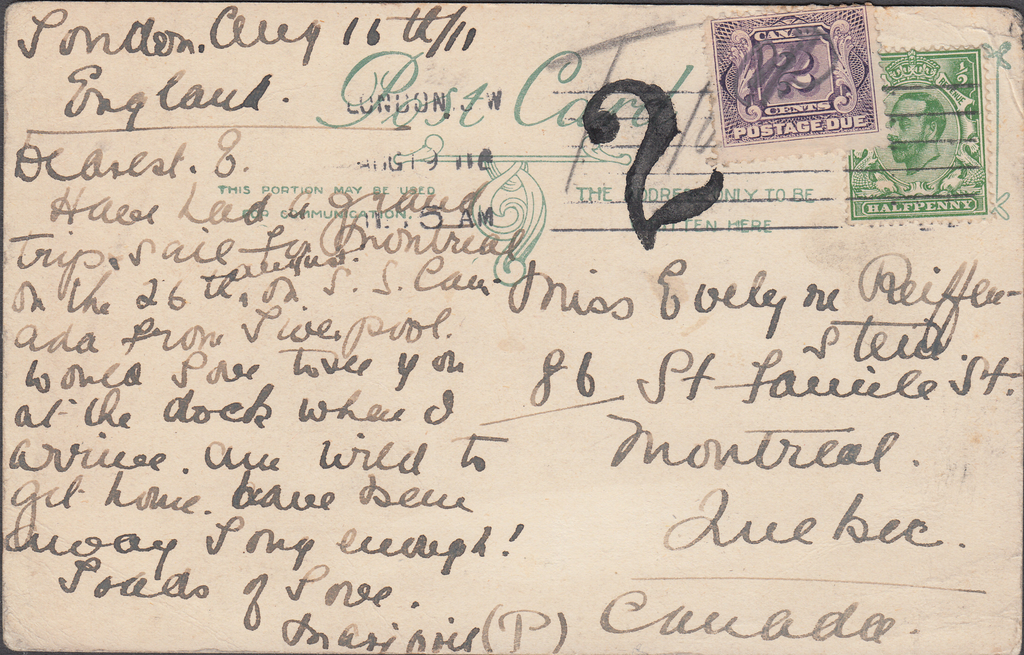 London. Aug 16th/11
England.
Post Card
LONDON. S W
AUG 19 11
5 AM
THIS PORTION MAY BE USED
FOR COMMUNICATION.
THE ADDRESS ONLY TO BE
WRITTEN HERE
CANADA
2
CENTS
POSTAGE DUE
½
HALFPENNY
2
Dearest. E.
Have had a grand
trip, sail for Montreal
on the 26th, August. on S. S. Can-
ada from Liverpool.
Would love to see you
at the dock when I
arrive. am wild to
get home. have been
away long enough!
Loads of love.
Marjorie (P)
Miss Evelyn Reiffen-
stein.
86 St Famile St.
Montreal.
Quebec.
Canada.